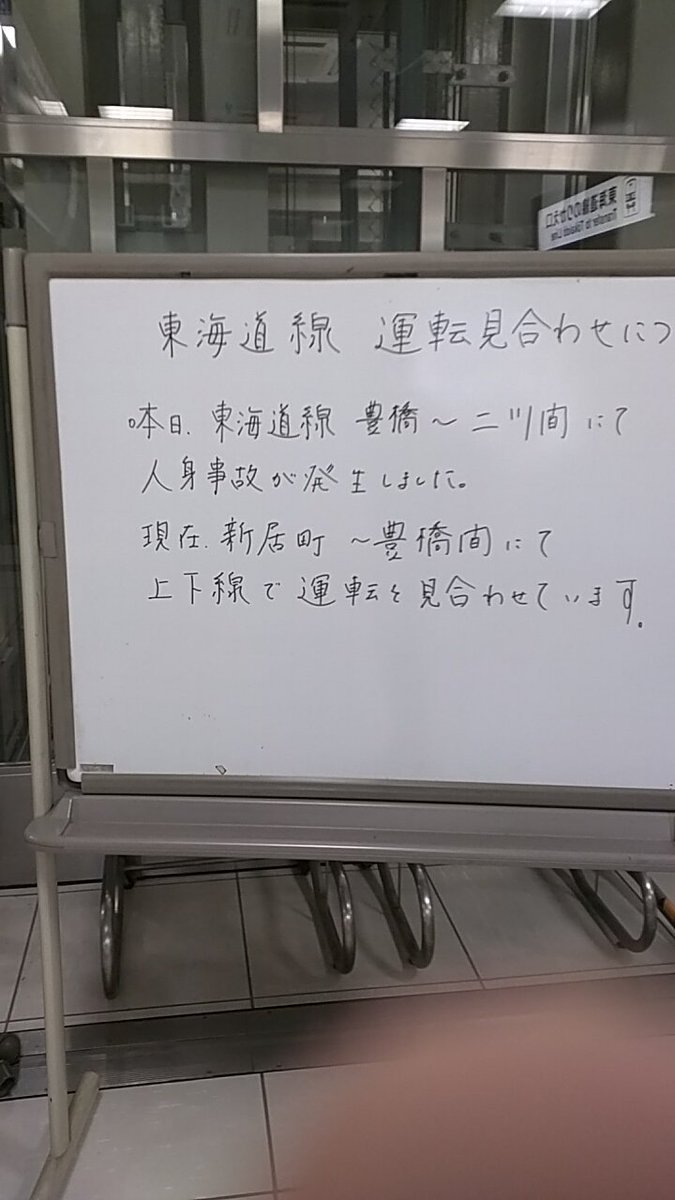 東海道線 運転見合わせにつ
本日、東海道線 豊橋～二川間にて
人身事故が発生しました。
現在、新居町～豊橋間にて
上下線で運転を見合わせています。
東海道線のりかえ口
Transfer to Tokaido Line